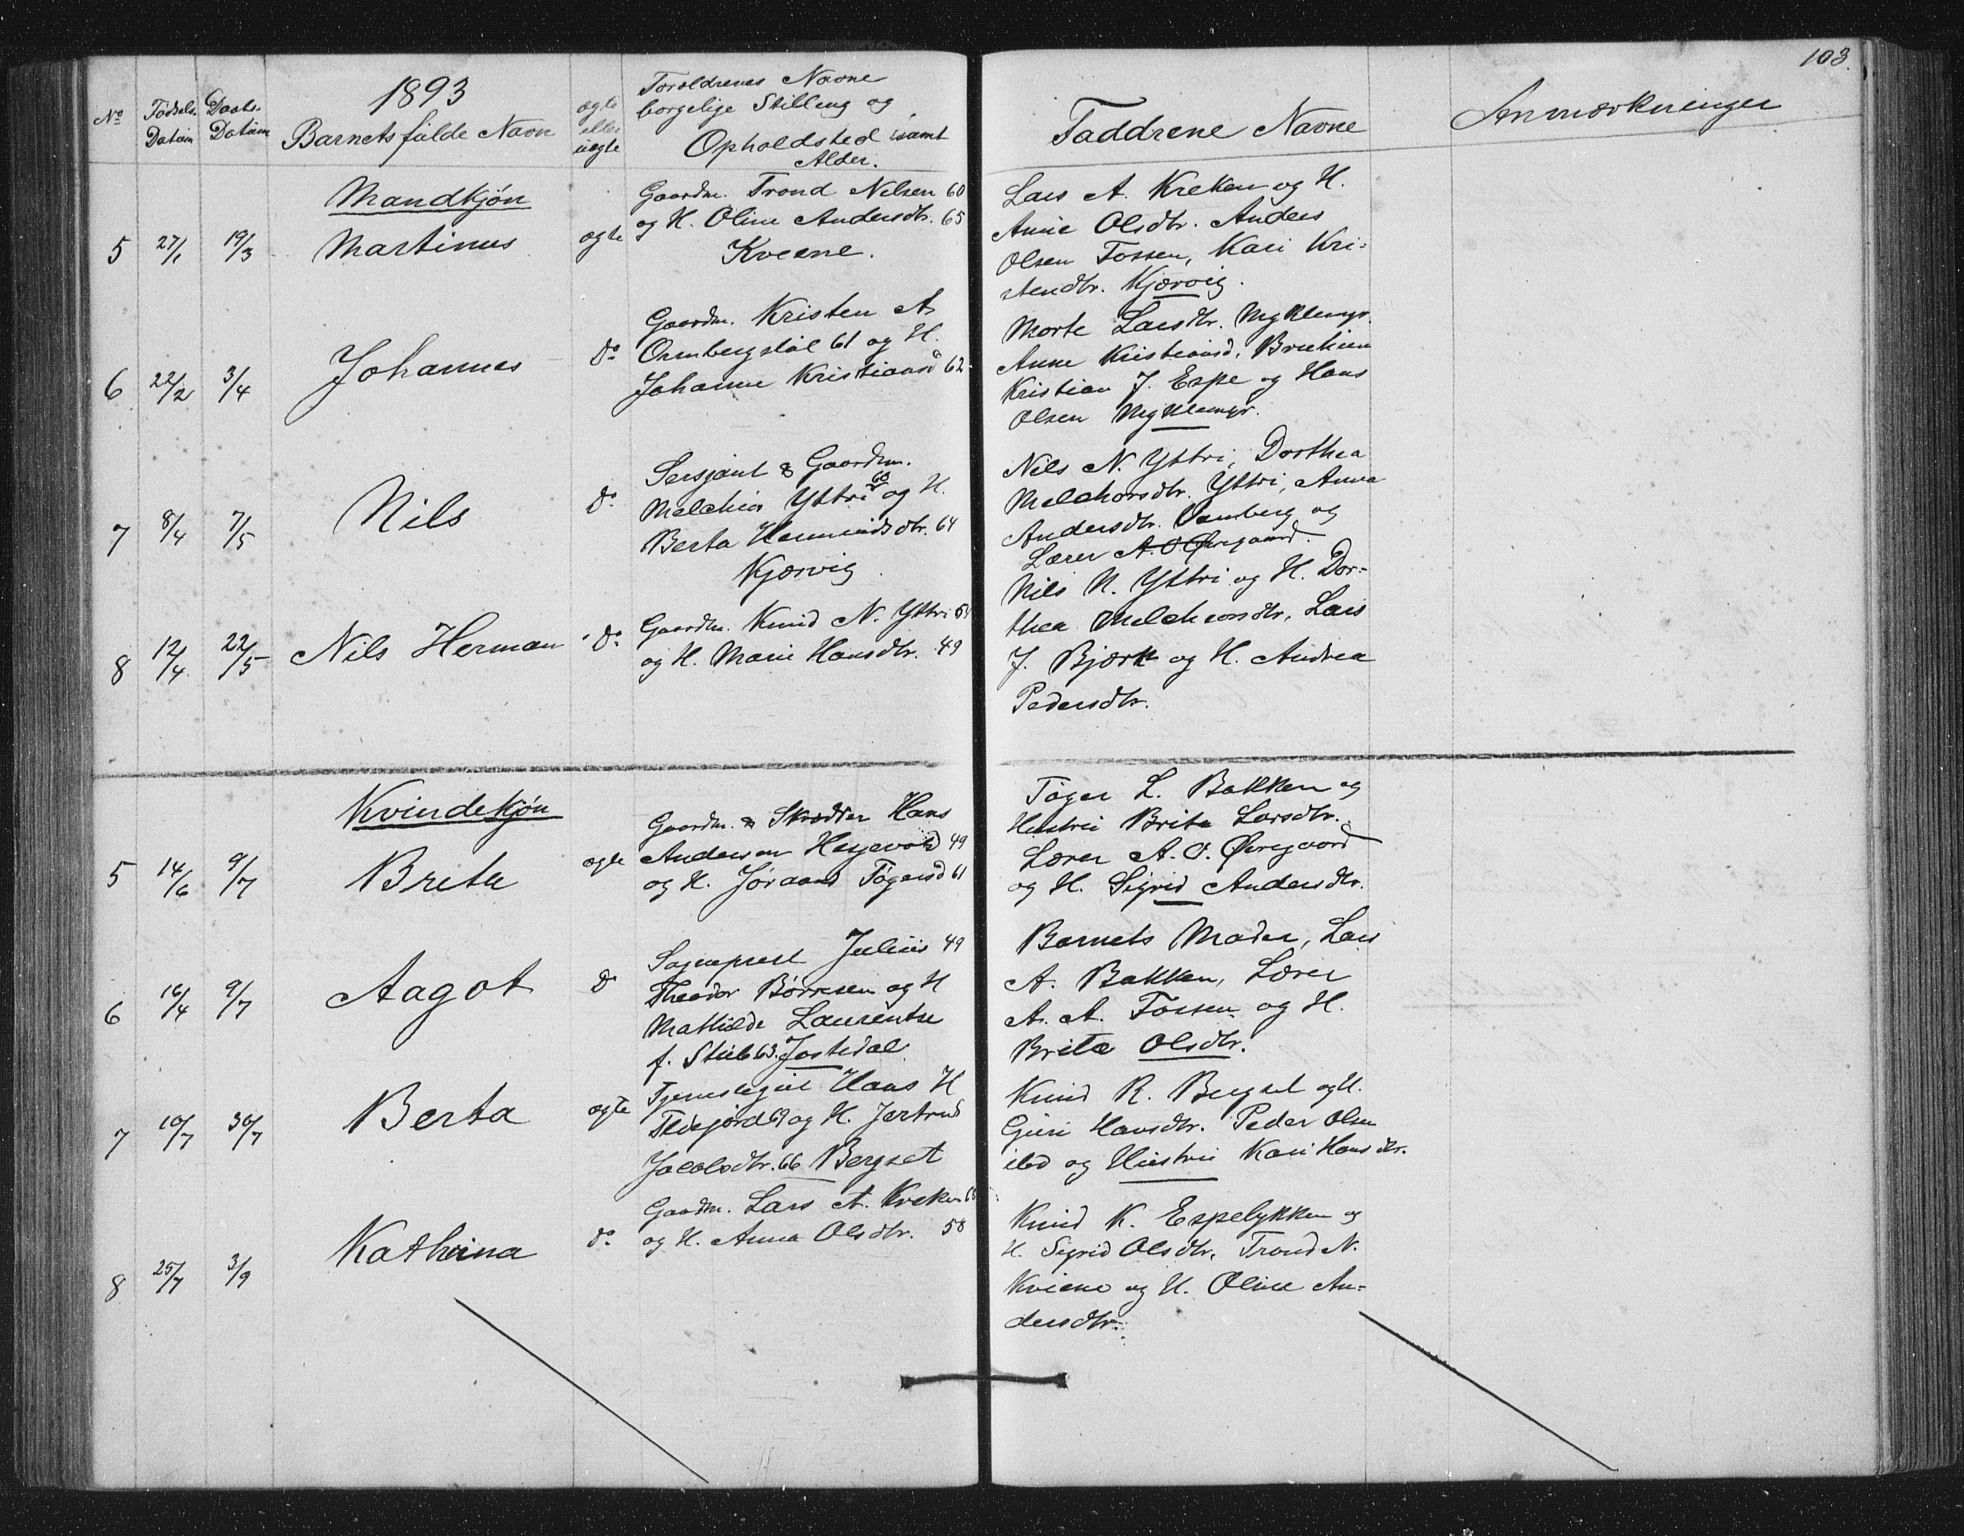 103.
No
Fødsels Datum
Daabs. Datum
1893
Barnets fulde Navn
ægte eller uægte
Foreldrenes Navne
borgelige Stilling og
Opholdsted samt
Alder.
Faddrene Navne
Anmærkninger
Mandkjøn
5 27/1 19/3 Martinus ægte
Gaardm. Trond Nilsen 60
og H. Oline Andersdtr. 65
Kveene.
Lars A. Kreken og H.
Anne Olsdtr. Anders
Olsen Fossen, Kari Kri-
stendtr. Kjærvig.
6 22/2 3/4 Johannes Do
Gaardm. Kristen A.
Ormbergstøl 61 og H.
Johanne Kristiansd 62
Marte Larsdtr. Myklemyr.
Anne Kristiansd.
Kristian J. Espe og Hans
Olsen Myklemyr.
7 8/4 7/5 Nils Do
Sersjant & Gaardm.
Melchior Yttri 60 og H.
Berta Hermundsdtr. 64
Kjærvig
Nils N. Yttri, Dorthea
Melchorsdtr. Yttri, Anna
Andersdtr. Ormberg og
Lærer A. O Øvregaard.
8 12/4 22/5 Nils Herman Do
Gaardm. Knud N. Yttri
og H. Marie Hansdtr. 49
Nils N. Yttri og H. Dor-
thea Melchiorsdtr., Lars
J. Bjørk og H. Andrea
Pedersdtr.
Kvindekjøn
5 14/6 9/7 Brita ægte
Gaardm. & Skrædder Hans
Andersen 49
og H. Jøraand Tøgersd 61
Tøger L. Bakken og
Hustru Brita Larsdtr.
Lærer A. O. Øvregaard
og H. Sigrid Andersdtr.
6 16/4 9/7 Aagot Do
Sogneprest Julius 49
Theodor Børresen og H
Mathilde Laurentse
f. Stub 63. Jostedal
Barnets Moder, Lars
A. Bakken, Lærer
A. A. Fossen og H.
Brita Olsdtr.
7 10/7 30/7 Berta ægte
Tjenestegut Hans H
69 og H. Jertrud
Jacobsdtr. 66 Bergset
Knud R. Bergset og H.
Guri Hansdtr. Peder Olsen
ibd og Hustru Kari Hansdtr.
8 25/7 3/9 Kathrina Do
Gaardm. Lars A. Kreken
og H. Anna Olsdtr. 58
Knud K. Espelykken og
H. Sigrid Olsdtr, Trond N.
Kviene og H. Oline An-
dersdtr.